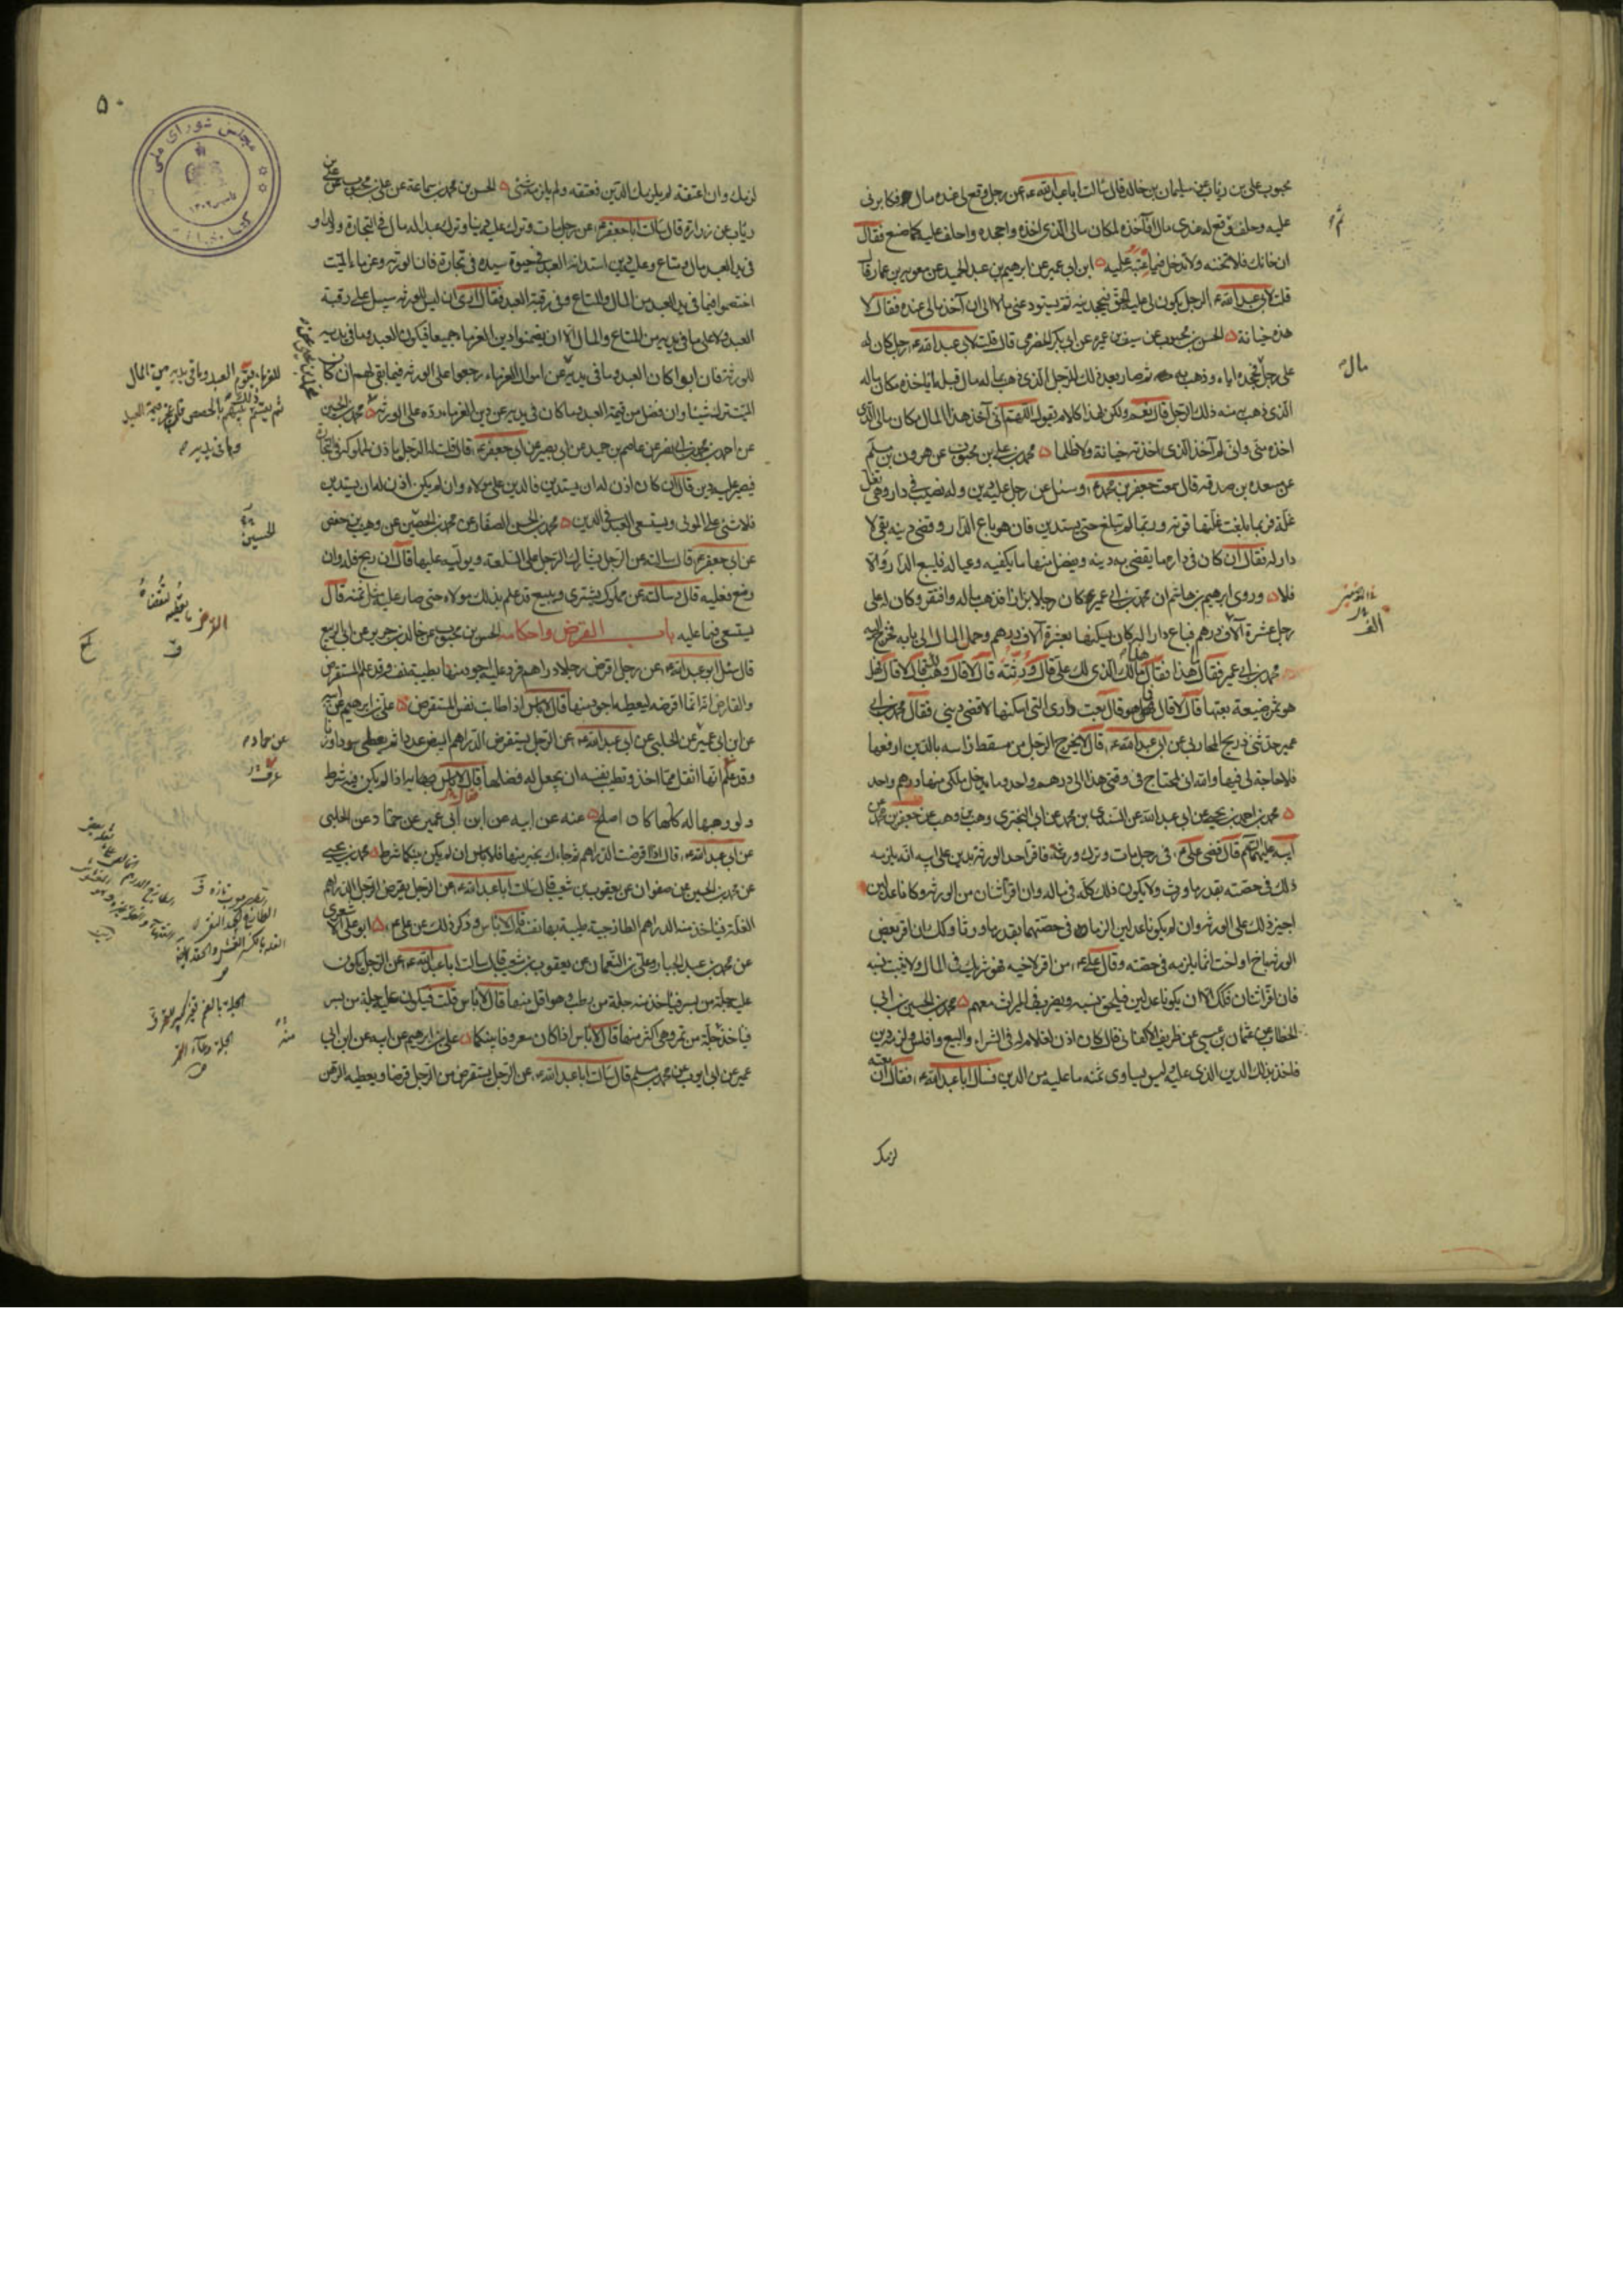 محبوب علي بن رئاب عن سليمان بن خالد قال سالت ابا عبد الله ع عن رجل وقع لي عنده مال فكابرني
عليه وحلف ثم وقع له عندي مال فآخذه لمكان مالي الذي اخذه واجحده واحلف عليه كما صنع فقال
ان خانك فلا تخنه ولا تدخل فيما عبته عليه ابن ابي عمير عن ابرهيم بن عبد الحميد عن معوية بن عمار قال
قلت لابي عبد الله ع الرجل يكون لي عليه الحق فيجحدنيه ثم يستودعني مالا الي ان آخذ مالي عنده فقال لا
هذه خيانة الحسن بن محبوب عن سيف بن عميرة عن ابي بكر الحضرمي قال قلت لابي عبد الله ع رجل كان له
علي رجل مال فجحده اياه وذهب به ثم صار بعد ذلك للرجل الذي ذهب بماله مال قبله ايأخذه مكان ماله
الذي ذهب به منه ذلك الرجل قال نعم ولكن لهذا كلام يقول اللهم اني آخذ هذا المال مكان مالي الذي
اخذه مني واني لم آخذ الذي اخذته خيانة ولا ظلما محمد بن علي بن محبوب عن هرون بن مسلم
عن مسعدة بن صدقة قال سمعت جعفر بن محمد ع وسئل عن رجل عليه دين وله نصيب في دار وهي تغل
غلة فربما بلغت غلتها قوته وربما لم تبلغ حتى يستدين فان هو باع الدار وقضى دينه بقي لا
دار له فقال ان كان في داره ما يقضي به دينه ويفضل منها ما يكفيه وعياله فليبع الدار والا
فلا وروى ابرهيم بن هاشم ان محمد بن ابي عمير كان رجلا بزازا فذهب ماله وافتقر وكان له على
رجل عشرة آلاف درهم فباع دارا له كان يسكنها بعشرة آلاف درهم وحمل المال الى بابه فخرج اليه
محمد بن ابي عمير فقال ما هذا فقال هذا مالك الذي لك علي قال ورثته قال لا قال وهب لك قال لا قال فهل
هو ثمن ضيعة بعتها قال لا قال فما هو قال بعت داري التي اسكنها لاقضي ديني فقال محمد بن ابي
عمير حدثني ذريح المحاربي عن ابي عبد الله ع قال لا يخرج الرجل من مسقط راسه بالدين ارفعها
فلا حاجة لي فيها والله اني لمحتاج في وقتي هذا الى درهم واحد وما يدخل ملكي منها درهم واحد
محمد بن احمد بن يحيى عن ابي عبد الله عن السندي بن محمد عن ابي البختري وهب بن وهب عن جعفر بن محمد عن
ابيه عليهما السلم قال قضى علي ع في رجل مات وترك ورثة فاقر احد الورثة بدين على ابيه انه يلزمه
ذلك في حصته بقدر ما ورث ولا يكون ذلك كله في ماله وان اقر اثنان من الورثة وكانا عدلين
اجيز ذلك على الورثة وان لم يكونا عدلين الزما في حصتهما بقدر ما ورثا وكذلك ان اقر بعض
الورثة باخ او اخت انما يلزمه في حصته وقال علي ع من اقر لاخيه فهو شريك في المال ولا يثبت نسبه
فان اقر اثنان فكذلك الا ان يكونا عدلين فيلحق بنسبه ويضرب في الميراث معهم محمد بن الحسين بن ابي
الخطاب عن عثمان بن عيسى عن ظريف الاكفاني قال كان اذن لغلام له في الشراء والبيع وافلس ولزمه دين
فاخذ بذلك الدين الذي عليه وليس يساوي ثمنه ما عليه من الدين فسال ابا عبد الله ع فقال ان بعته
لزمك
ثم
مال
الف
۵۰
مجلس شورای ملی
كتابخانه
لزمك وان اعتقته لم يلزمك الدين فعتقه ولم يلزمه شئ الحسن بن محمد بن سماعة عن علي بن محبوب عن علي بن
رئاب عن زرارة قال سالت ابا جعفر ع عن رجل مات وترك عليه دينا وترك عبدا له مال في التجارة وولدا و
في يد العبد مال ومتاع وعليه دين استدانه العبد في حيوة سيده في تجارة فان الورثة وغرماء الميت
اختصموا فيما في يد العبد من المال والمتاع وفي رقبة العبد فقال ارى ان ليس للورثة سبيل على رقبة
العبد ولا على ما في يديه من المتاع والمال الا ان يضمنوا دين الغرماء جميعا فيكون العبد وما في يديه
للورثة فان ابوا كان العبد وما في يديه عن اموال الغرماء رجعوا على الورثة فيما بقي لهم ان كان
الميت ترك شيئا وان فضل من قيمة العبد وما كان في يديه عن دين الغرماء رده على الورثة محمد بن الحسين
عن احمد بن محمد بن ابي نصر عن عاصم بن حميد عن ابي بصير عن ابي جعفر ع قال قلت له الرجل ياذن لمملوكه في التجارة
فيصير عليه دين قال ان كان اذن له ان يستدين فالدين على مولاه وان لم يكن اذن له ان يستدين
فلا شئ على المولى ويستسعى العبد في الدين محمد بن الحسن الصفار عن محمد بن الحصين عن وهيب بن حفص
عن ابي جعفر ع قال سالته عن الرجل يشارك الرجل على السلعة ويوليه عليها قال ان ربح فله وان
وضع فعليه قال وسالته عن مملوك يشتري ويبيع قد علم بذلك مولاه حتى صار عليه مثل ثمنه قال
يستسعى فيما عليه باب القرض واحكامه الحسن بن محبوب عن خالد بن جرير عن ابي الربيع
قال سئل ابو عبد الله ع عن رجل اقرض رجلا دراهم فرد عليه اجود منها بطيبة نفسه وقد علم المستقرض
والقارض انه انما اقرضه ليعطيه اجود منها قال لا باس اذا طابت نفس المستقرض علي بن ابرهيم عن ابيه
عن ابن ابي عمير عن الحلبي عن ابي عبد الله ع عن الرجل يستقرض الدراهم البيض عددا ثم يعطي سودا وزنا
وقد علم انها اثقل مما اخذ وتطيب نفسه ان يجعل له فضلها فقال لا باس به اذا لم يكن فيه شرط
ولو وهبها له كلها كان اصلح عنه عن ابيه عن ابن ابي عمير عن حماد عن الحلبي
عن ابي عبد الله ع قال اذا اقرضت الدراهم ثم جاءك بخير منها فلا باس ان لم يكن بينكما شرط محمد بن يحيى
عن محمد بن الحسين عن صفوان عن يعقوب بن شعيب قال سالت ابا عبد الله ع عن الرجل يقرض الرجل الدراهم
الغلة فياخذ منه الدراهم الطازجية طيبة بها نفسه قال لا باس وذكر ذلك عن علي ع ابو علي الاشعري
عن محمد بن عبد الجبار وعلي بن النعمان عن يعقوب بن شعيب قال سالت ابا عبد الله ع عن الرجل يكون
عليه جلة من بسر فياخذ منه جلة من رطب وهو اقل منها قال لا باس قلت فيكون عليه جلة من بسر
فياخذ جلة من تمر وهي اكثر منها قال لا باس اذا كان معروفا بينكما علي بن ابرهيم عن ابيه عن ابن ابي
عمير عن ابي ايوب عن محمد بن مسلم قال سالت ابا عبد الله ع عن الرجل يستقرض من الرجل قرضا ويعطيه الرهن
للغرماء يقوم العبد وما في يديه من المال
ثم يقسم ذلك بينهم بالحصص فان عجز قيمة العبد
وما في يديه
الحسين
القرض ما يعطيه لتقضاه
عن حماد
منه